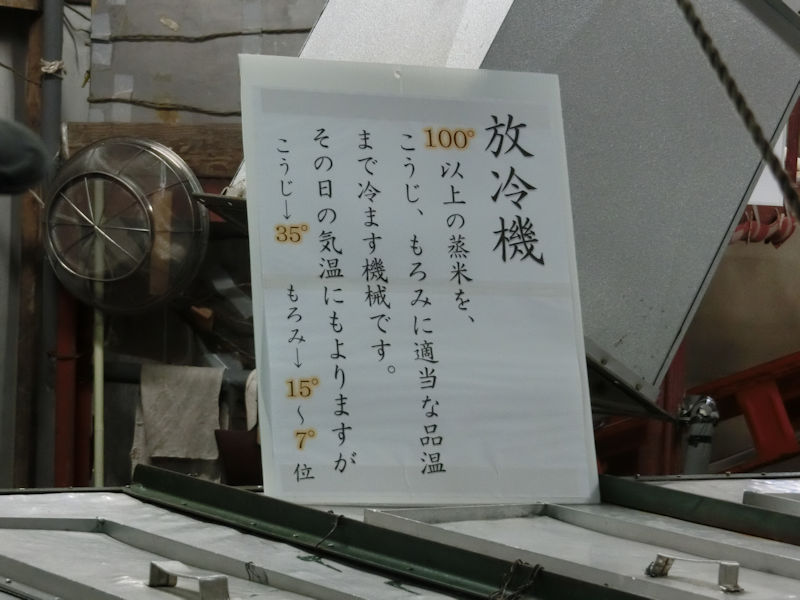 放冷機
100°以上の蒸米を、
こうじ、もろみに適当な品温
まで冷ます機械です。
その日の気温にもよりますが
こうじ→35° もろみ→15°～7°位